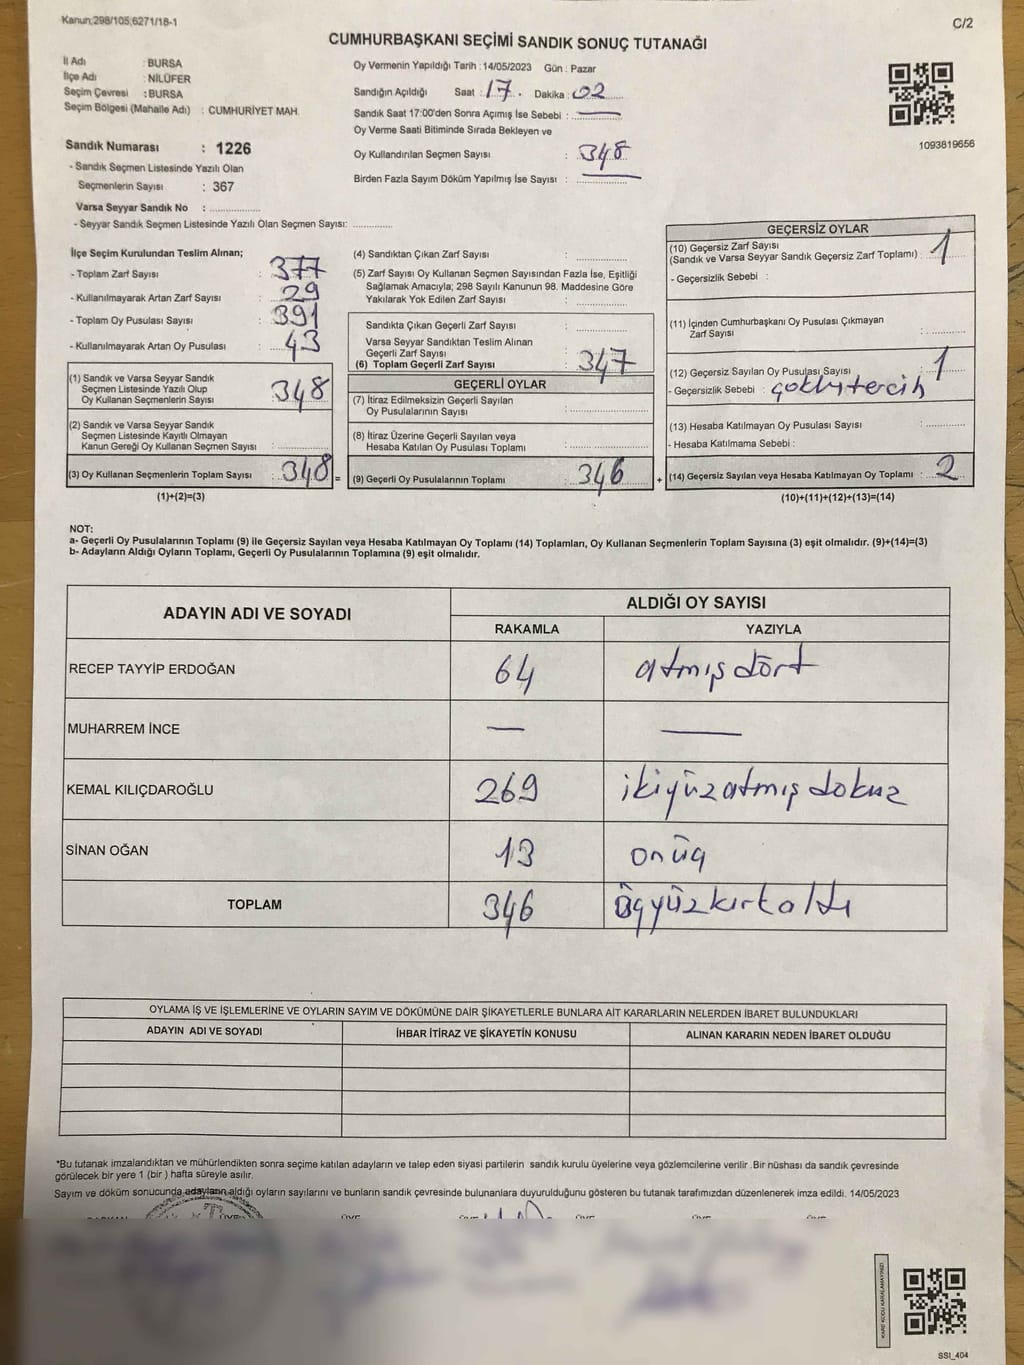 Kanun;298/105;6271/18-1
C/2
CUMHURBAŞKANI SEÇİMİ SANDIK SONUÇ TUTANAĞI
İl Adı : BURSA
İlçe Adı : NİLÜFER
Seçim Çevresi : BURSA
Seçim Bölgesi (Mahalle Adı) : CUMHURİYET MAH.
Oy Vermenin Yapıldığı Tarih : 14/05/2023 Gün : Pazar
Sandığın Açıldığı Saat : 17. Dakika : 02
Sandık Saat 17:00'den Sonra Açımış İse Sebebi : —
Oy Verme Saati Bitiminde Sırada Bekleyen ve
Oy Kullandırılan Seçmen Sayısı : 348
Birden Fazla Sayım Döküm Yapılmış İse Sayısı : —
1093819656
Sandık Numarası : 1226
- Sandık Seçmen Listesinde Yazılı Olan
Seçmenlerin Sayısı : 367
Varsa Seyyar Sandık No : ..................
- Seyyar Sandık Seçmen Listesinde Yazılı Olan Seçmen Sayısı: ..............
İlçe Seçim Kurulundan Teslim Alınan;
- Toplam Zarf Sayısı : 377
- Kullanılmayarak Artan Zarf Sayısı : 29
- Toplam Oy Pusulası Sayısı : 391
- Kullanılmayarak Artan Oy Pusulası : 43
(1) Sandık ve Varsa Seyyar Sandık
Seçmen Listesinde Yazılı Olup
Oy Kullanan Seçmenlerin Sayısı : 348
(2) Sandık ve Varsa Seyyar Sandık
Seçmen Listesinde Kayıtlı Olmayan
Kanun Gereği Oy Kullanan Seçmen Sayısı : ..............
(3) Oy Kullanan Seçmenlerin Toplam Sayısı : 348 =
(1)+(2)=(3)
(4) Sandıktan Çıkan Zarf Sayısı : ..............
(5) Zarf Sayısı Oy Kullanan Seçmen Sayısından Fazla İse, Eşitliği
Sağlamak Amacıyla; 298 Sayılı Kanunun 98. Maddesine Göre
Yakılarak Yok Edilen Zarf Sayısı : ..............
Sandıkta Çıkan Geçerli Zarf Sayısı : ..............
Varsa Seyyar Sandıktan Teslim Alınan
Geçerli Zarf Sayısı : ..............
(6) Toplam Geçerli Zarf Sayısı : 347
GEÇERLİ OYLAR
(7) İtiraz Edilmeksizin Geçerli Sayılan
Oy Pusulalarının Sayısı : ..............
(8) İtiraz Üzerine Geçerli Sayılan veya
Hesaba Katılan Oy Pusulası Toplamı : ..............
(9) Geçerli Oy Pusulalarının Toplamı : 346 +
GEÇERSİZ OYLAR
(10) Geçersiz Zarf Sayısı
(Sandık ve Varsa Seyyar Sandık Geçersiz Zarf Toplamı) : 1
- Geçersizlik Sebebi :
(11) İçinden Cumhurbaşkanı Oy Pusulası Çıkmayan
Zarf Sayısı : ..............
(12) Geçersiz Sayılan Oy Pusulası Sayısı : 1
- Geçersizlik Sebebi : çoklu tercih
(13) Hesaba Katılmayan Oy Pusulası Sayısı : ..............
- Hesaba Katılmama Sebebi :
(14) Geçersiz Sayılan veya Hesaba Katılmayan Oy Toplamı : 2
(10)+(11)+(12)+(13)=(14)
NOT:
a- Geçerli Oy Pusulalarının Toplamı (9) ile Geçersiz Sayılan veya Hesaba Katılmayan Oy Toplamı (14) Toplamları, Oy Kullanan Seçmenlerin Toplam Sayısına (3) eşit olmalıdır. (9)+(14)=(3)
b- Adayların Aldığı Oyların Toplamı, Geçerli Oy Pusulalarının Toplamına (9) eşit olmalıdır.
ADAYIN ADI VE SOYADI
ALDIĞI OY SAYISI
RAKAMLA YAZIYLA
RECEP TAYYİP ERDOĞAN 64 atmış dört
MUHARREM İNCE — —
KEMAL KILIÇDAROĞLU 269 ikiyüzatmış dokuz
SİNAN OĞAN 13 onüç
TOPLAM 346 üçyüzkırkaltı
OYLAMA İŞ VE İŞLEMLERİNE VE OYLARIN SAYIM VE DÖKÜMÜNE DAİR ŞİKAYETLERLE BUNLARA AİT KARARLARIN NELERDEN İBARET BULUNDUKLARI
ADAYIN ADI VE SOYADI İHBAR İTİRAZ VE ŞİKAYETİN KONUSU ALINAN KARARIN NEDEN İBARET OLDUĞU
*Bu tutanak imzalandıktan ve mühürlendikten sonra seçime katılan adayların ve talep eden siyasi partilerin sandık kurulu üyelerine veya gözlemcilerine verilir .Bir nüshası da sandık çevresinde
görülecek bir yere 1 (bir ) hafta süreyle asılır.
Sayım ve döküm sonucunda adayların aldığı oyların sayılarını ve bunların sandık çevresinde bulunanlara duyurulduğunu gösteren bu tutanak tarafımızdan düzenlenerek imza edildi. 14/05/2023
SSI_404